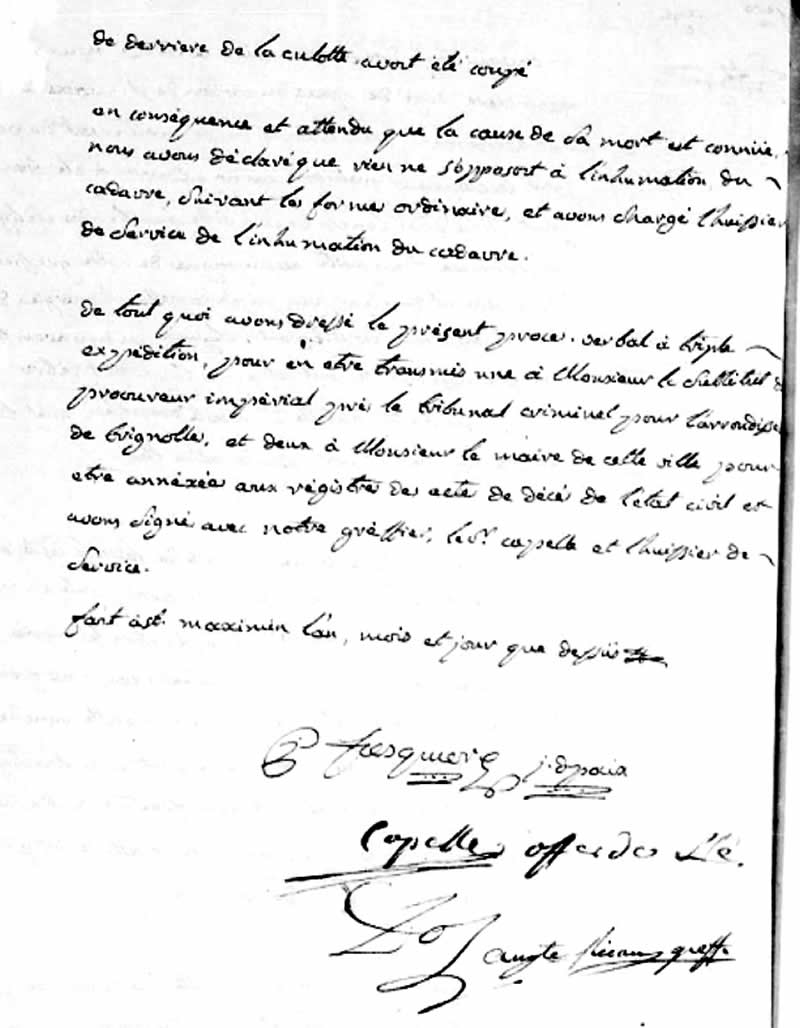 de derriere de la culotte avoit été coupé
en conséquence et attendu que la cause de sa mort est connüe,
nous avons déclaré que rien ne s'opposoit à l'inhumation du
cadavre, suivant les forme ordinaire, et avons chargé l'huissier
de service de l'inhumation du cadavre.
de tout quoi avons dressé le présent procé-verbal à triple
expédition, pour en etre transmis une à Monsieur le substitut d
procureur impérial près le tribunal criminel pour l'arrondisse
de brignolle, et deux à Monsieur le maire de cette ville pour
etre annéxées aux régistres des acte de décés de l'état civil et
avons signé avec notre gréffier, le Sr. capelle et l'huissier de
service.
fait à St. maximin l'an, mois et jour que dessus
fasquier j. depaix
Capelle off. de Sté.
augte greff.